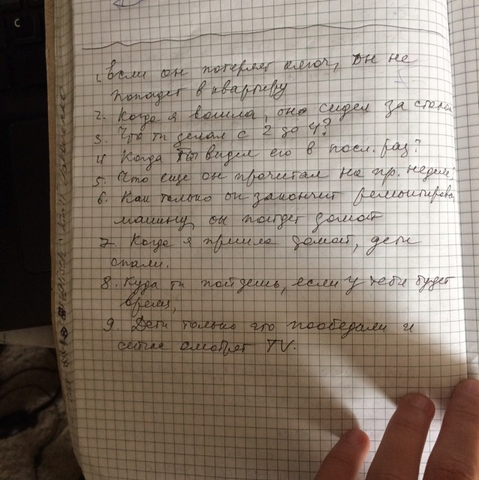 1. Если он потеряет ключ, он не
попадет в квартиру
2. Когда я вошла, он сидел за столом
3. Что ты делал с 2 до 4?
4. Когда ты видел его в посл. раз?
5. Что еще он прочитал на пр. неделе
6. Как только он закончит ремонтировать
машину, он пойдет домой
7. Когда я пришла домой, дети
спали.
8. Куда ты пойдешь, если у тебя будет
время,
9. Дети только что пообедали и
сейчас смотрят TV.